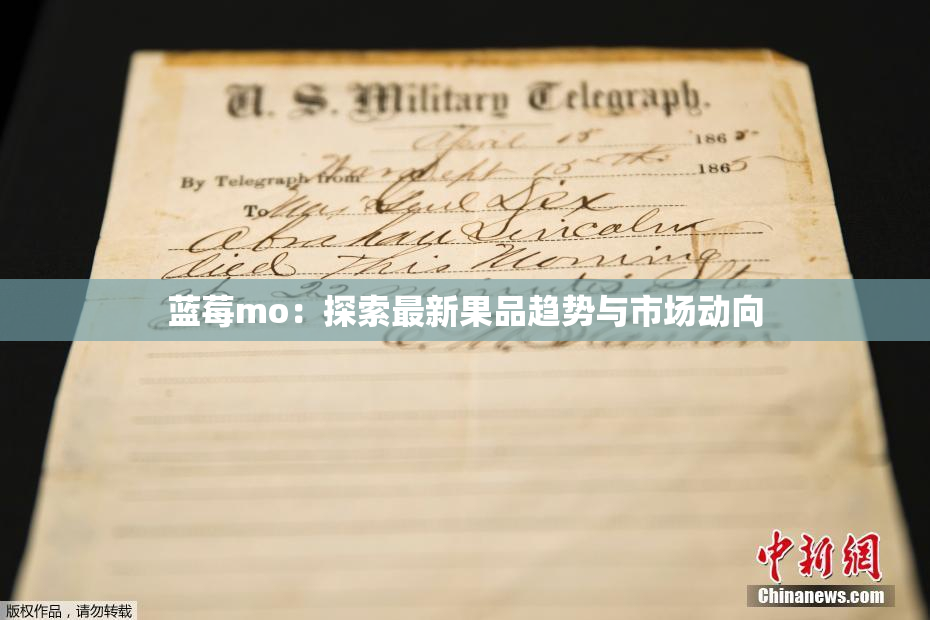 U. S. Military Telegraph.
April 15 1865
By Telegraph from War Dept 15th 1865
To Maj Genl Dix
Abraham Lincoln
died This Morning
at 22 minutes after
蓝莓mo：探索最新果品趋势与市场动向
E. M. Stanton
中新網
Chinanews.com
版权作品，请勿转载